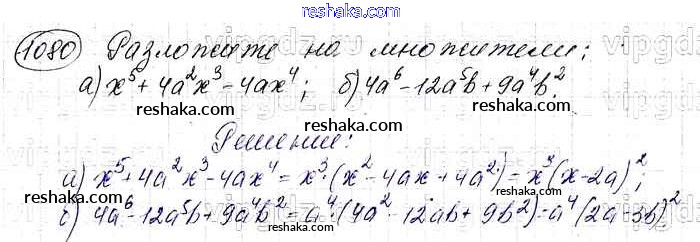 reshak.ru
1080 Разложите на множители:
а) x⁵+4a²x³-4ax⁴; б) 4a⁶-12a⁵b+9a⁴b².
reshaka.com reshaka.com
Решение:
reshaka.com
а) x⁵+4a²x³-4ax⁴=x³·(x²-4ax+4a²)=x³(x-2a)²;
reshaka.com
б) 4a⁶-12a⁵b+9a⁴b²=a⁴·(4a²-12ab+9b²)=a⁴(2a-3b)²
reshaka.com reshaka.com